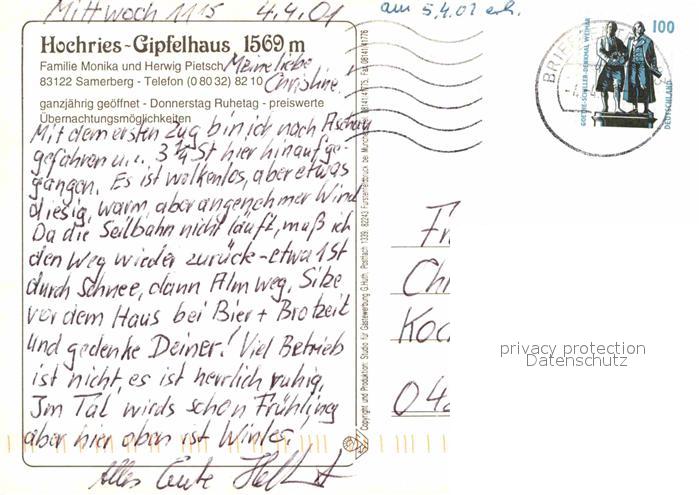 Mittwoch 11¹⁵ 4.4.01
am 5.4.01 erh.
Hochries-Gipfelhaus 1569 m
Familie Monika und Herwig Pietsch
83122 Samerberg - Telefon (0 80 32) 82 10
Meine liebe
Christine!
ganzjährig geöffnet - Donnerstag Ruhetag - preiswerte
Übernachtungsmöglichkeiten
Mit dem ersten Zug bin ich nach Aschau
gefahren u. 3 ¼ St hier hinaufge-
gangen. Es ist wolkenlos, aber etwas
diesig, warm, aber angenehmer Wind
Da die Seilbahn nicht läuft, muß ich
den Weg wieder zurück - etwa 1 St
durch Schnee, dann Almweg. Sitze
vor dem Haus bei Bier + Brotzeit
und gedenke Deiner! Viel Betrieb
ist nicht, es ist herrlich ruhig.
Im Tal wirds schon Frühling
aber hier oben ist Winter.
Alles Gute
Copyright und Produktion: Studio für Gastewerbung G. Huth, Postfach 1339, 82243 Fürstenfeldbruck
100
GOETHE-SCHILLER-DENKMAL WEIMAR
DEUTSCHLAND
BRIEF
Fr
Chr
Koc
04
privacy protection
Datenschutz